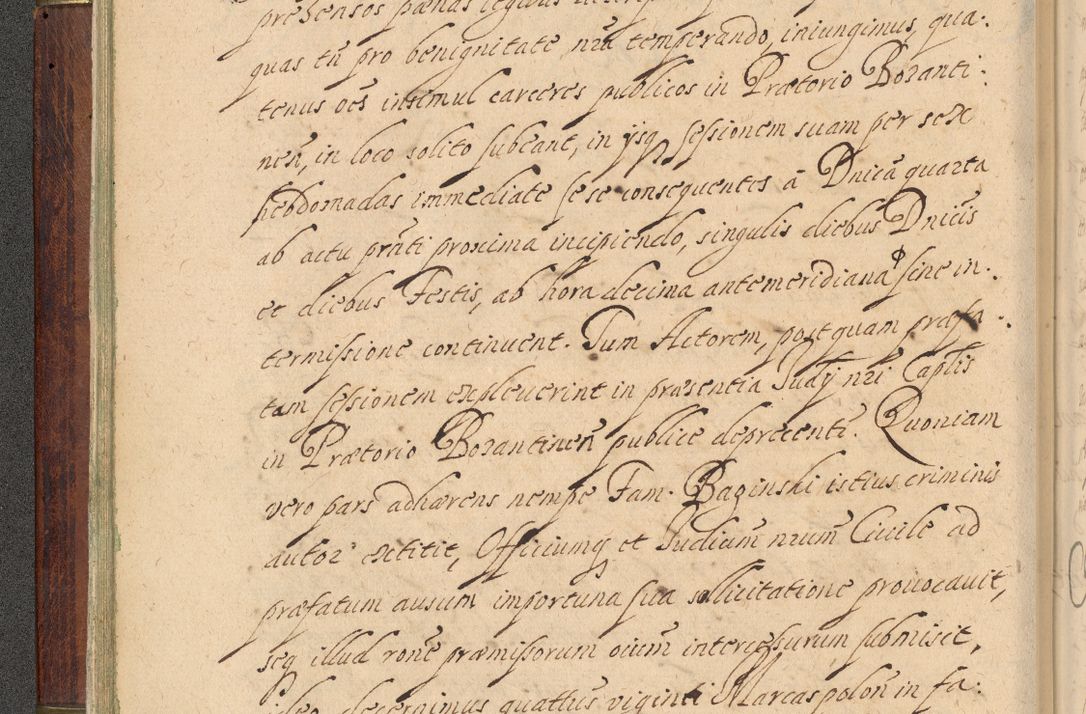 prehensos pænas legibus
quas tñ pro benignitate nrã temperando, iniungimus, qua:
tenus oẽs insimul carceres publicos in Prætorio Bozanti:
neñ, in loco solito subeant, in ijsq sessionem suam per sex
hebdomadas immediate sese consequentes à Dnicã quarta
ab actu prñti proxima incipiendo, singulis diebus Dnicis
et diebus Festis, ab hora decima antemeridiana sine in:
termissione continuent. Tum Actorem, postquam præfa:
tam sessionem expleverint in præsentia Judij nri Caplis
in Prætorio Bozantineñ publice deprecentr. Quoniam
vero pars adhærens nempe Fam. Baginski istius criminis
autor extitit, Officiumq et Judicium nrum Civile ad
præfatum ausum importuna sua sollicitatione provocavit,
seq illud rone præmissorum oium intercessurum submisit,
ideo decernimus quattus viginti Marcas polon in fa: